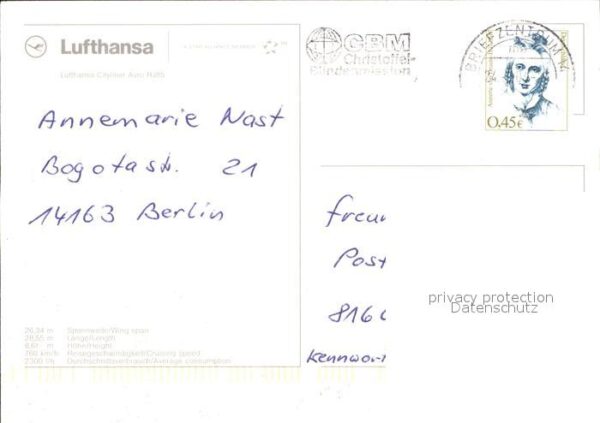 Lufthansa
A STAR ALLIANCE MEMBER
Lufthansa CityLiner Avro RJ85
Annemarie Nast
Bogotastr. 21
14163 Berlin
CBM
Christoffel-
Blindenmission
BRIEFZENTRUM
0,45€
freun
Post
816
Kennwor
privacy protection
Datenschutz
26,34 m Spannweite/Wing span
28,55 m Länge/Length
8,61 m Höhe/Height
760 km/h Reisegeschwindigkeit/Cruising speed
2300 l/h Durchschnittsverbrauch/Average consumption